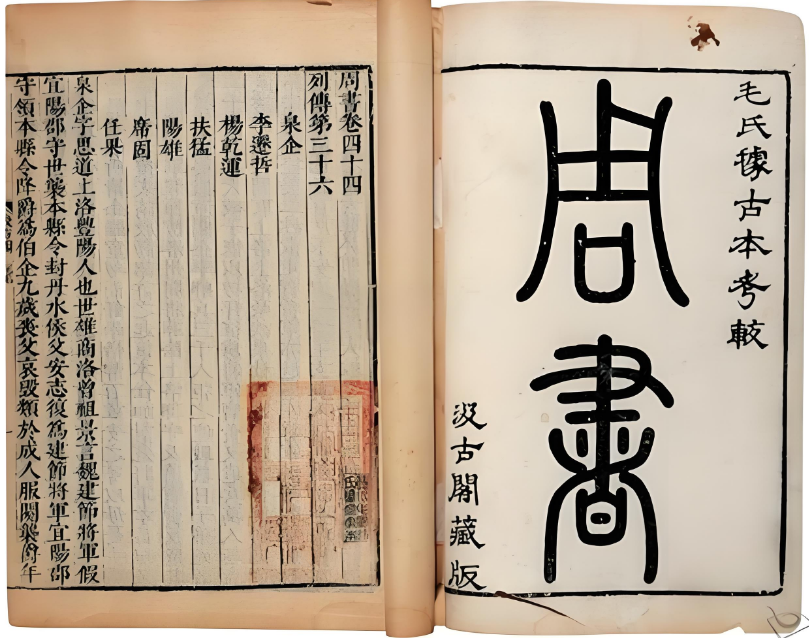 毛氏據古本考較
周書
汲古閣藏版
周書卷四十四
列傳第三十六
泉企
李遷哲
楊乾運
扶猛
陽雄
席固
任果
泉企字思道上洛豐陽人也世雄商洛曾祖景言魏建節將軍假
宜陽郡守世襲本縣令封丹水侯父安志復爲建節將軍宜陽郡
守領本縣令降爵爲伯企九歲喪父哀毀類於成人服闋襲爵年